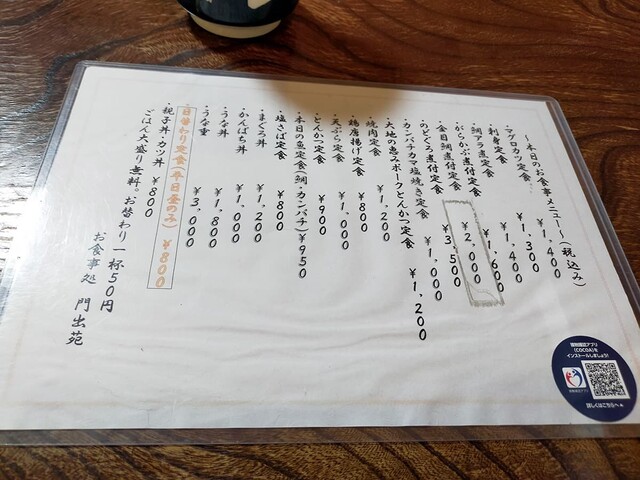 ～本日のお食事メニュー～(税込み)
・マグロカツ定食 ¥1,400
・刺身定食 ¥1,300
・鯛アラ煮定食 ¥1,400
・がらかぶ煮付定食 ¥1,600
・金目鯛煮付定食 ¥2,000
・のどぐろ煮付定食 ¥3,500
・カンパチカマ塩焼き定食 ¥1,000
・大地の恵みポークとんかつ定食 ¥1,200
・焼肉定食 ¥1,200
・鶏唐揚げ定食 ¥800
・天ぷら定食 ¥1,000
・とんかつ定食 ¥900
・本日の魚定食(鯛・カンパチ)¥950
・塩さば定食 ¥800
・まぐろ丼 ¥1,200
・かんぱち丼 ¥1,000
・うな丼 ¥1,800
・うな重 ¥3,000
・日替わり定食(平日昼のみ) ¥800
・親子丼・カツ丼 ¥800
ごはん大盛り無料。お替わり一杯50円
お食事処 門出苑
接触確認アプリ
(COCOA)を
インストールしましょう!
詳しくはこちらへ